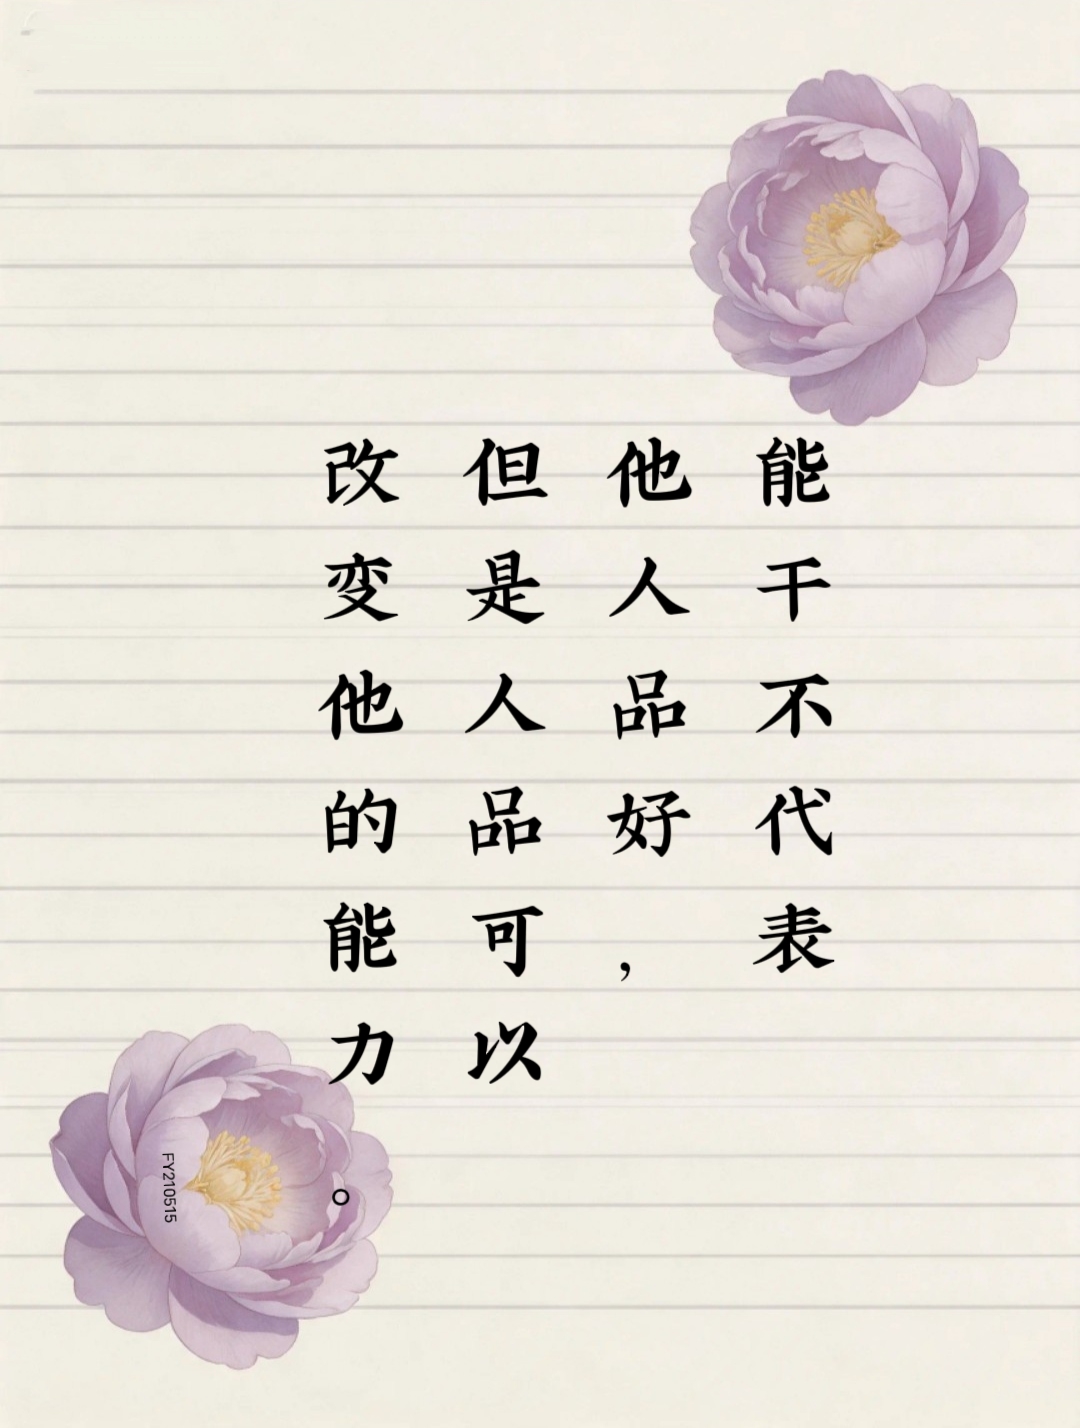 能干不代表
他人品好，
但是人品可以
改变他的能力。
FY210515